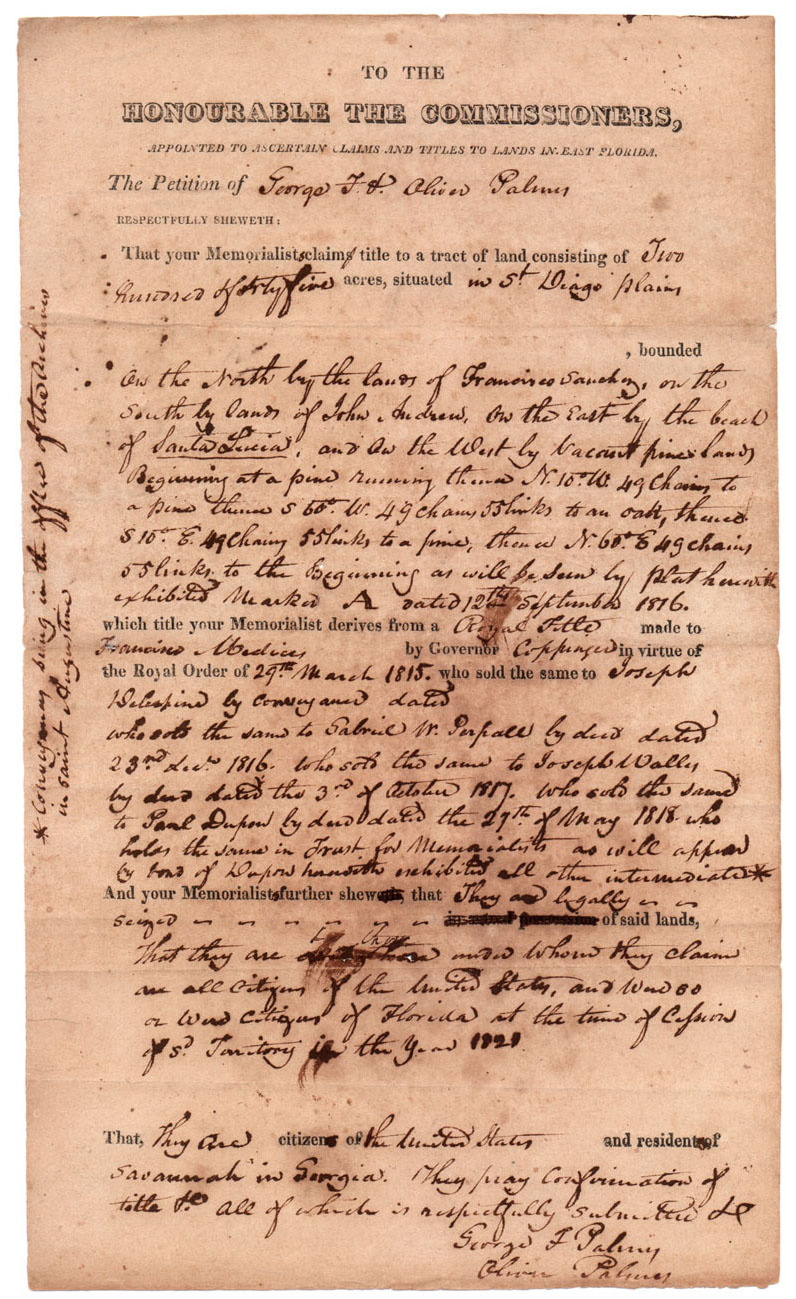 TO THE
HONOURABLE THE COMMISSIONERS,
APPOINTED TO ASCERTAIN CLAIMS AND TITLES TO LANDS IN EAST FLORIDA.
The Petition of George F. & Oliver Palmes
RESPECTFULLY SHEWETH:
That your Memorialists claim title to a tract of land consisting of Two
hundred & forty five acres, situated in St. Diago plains
, bounded
On the North by the lands of Francisco Sanchez, on the
South by lands of John Andrew, On the East by the beach
of Santa Lucia, and On the West by Vacant pine lands
Beginning at a pine running thence N. 10° W. 49 Chains to
a pine thence S 60° W. 49 chains 55 links to an oak, thence
S 10° E. 49 Chains 55 links to a pine, thence N. 60° E 49 chains
55 links to the Beginning as will be seen by plat herewith
exhibited Marked A dated 12th September 1816.
which title your Memorialist derives from a Royal Title made to
Francisco Medices by Governor Coppinger in virtue of
the Royal Order of 29th March 1815. who sold the same to Joseph
Delespine by conveyance dated
who sold the same to Gabriel W. Perpall by deed dated
23rd decr. 1816. who sold the same to Joseph Wally
by deed dated the 3rd of October 1817. Who sold the same
to Paul Dupon by deed dated the 27th of May 1818 who
holds the same in Trust for Memorialists as will appear
by bond of Dupon herewith exhibited all other intermediate *
And your Memorialists further shew that They are legally
seized of said lands,
That they are & those under whom they claim
are all Citizens of the United States, and were so
or were Citizens of Florida at the time of Cession
of sd. Territory in the Year 1821
That, They are citizens of the United States and residents of
Savannah in Georgia. They pray Confirmation of
title &c all of which is respectfully submitted &c
George F Palmes
Oliver Palmes
* Conveyances being in the office of the Archives
in Saint Augustine